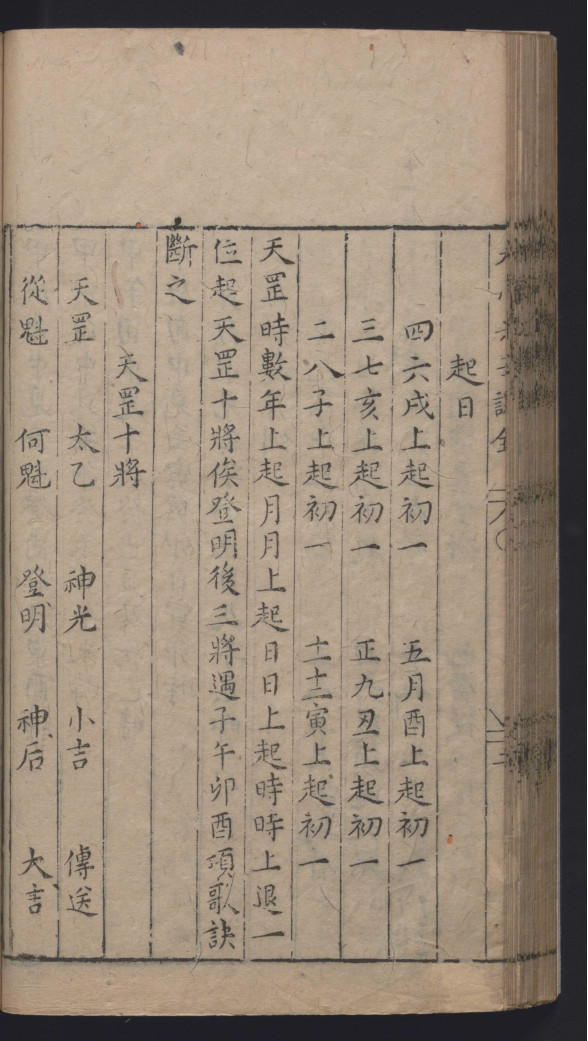 起日
四六戌上起初一 五月酉上起初一
三七亥上起初一 正九丑上起初一
二八子上起初一 十十二寅上起初一
天罡時數年上起月月上起日日上起時時上退一
位起天罡十將俟登明後三將遇子午卯酉項歌訣
斷之
天罡十將
天罡 太乙 神光 小吉 傳送
從魁 何魁 登明 神后 大吉